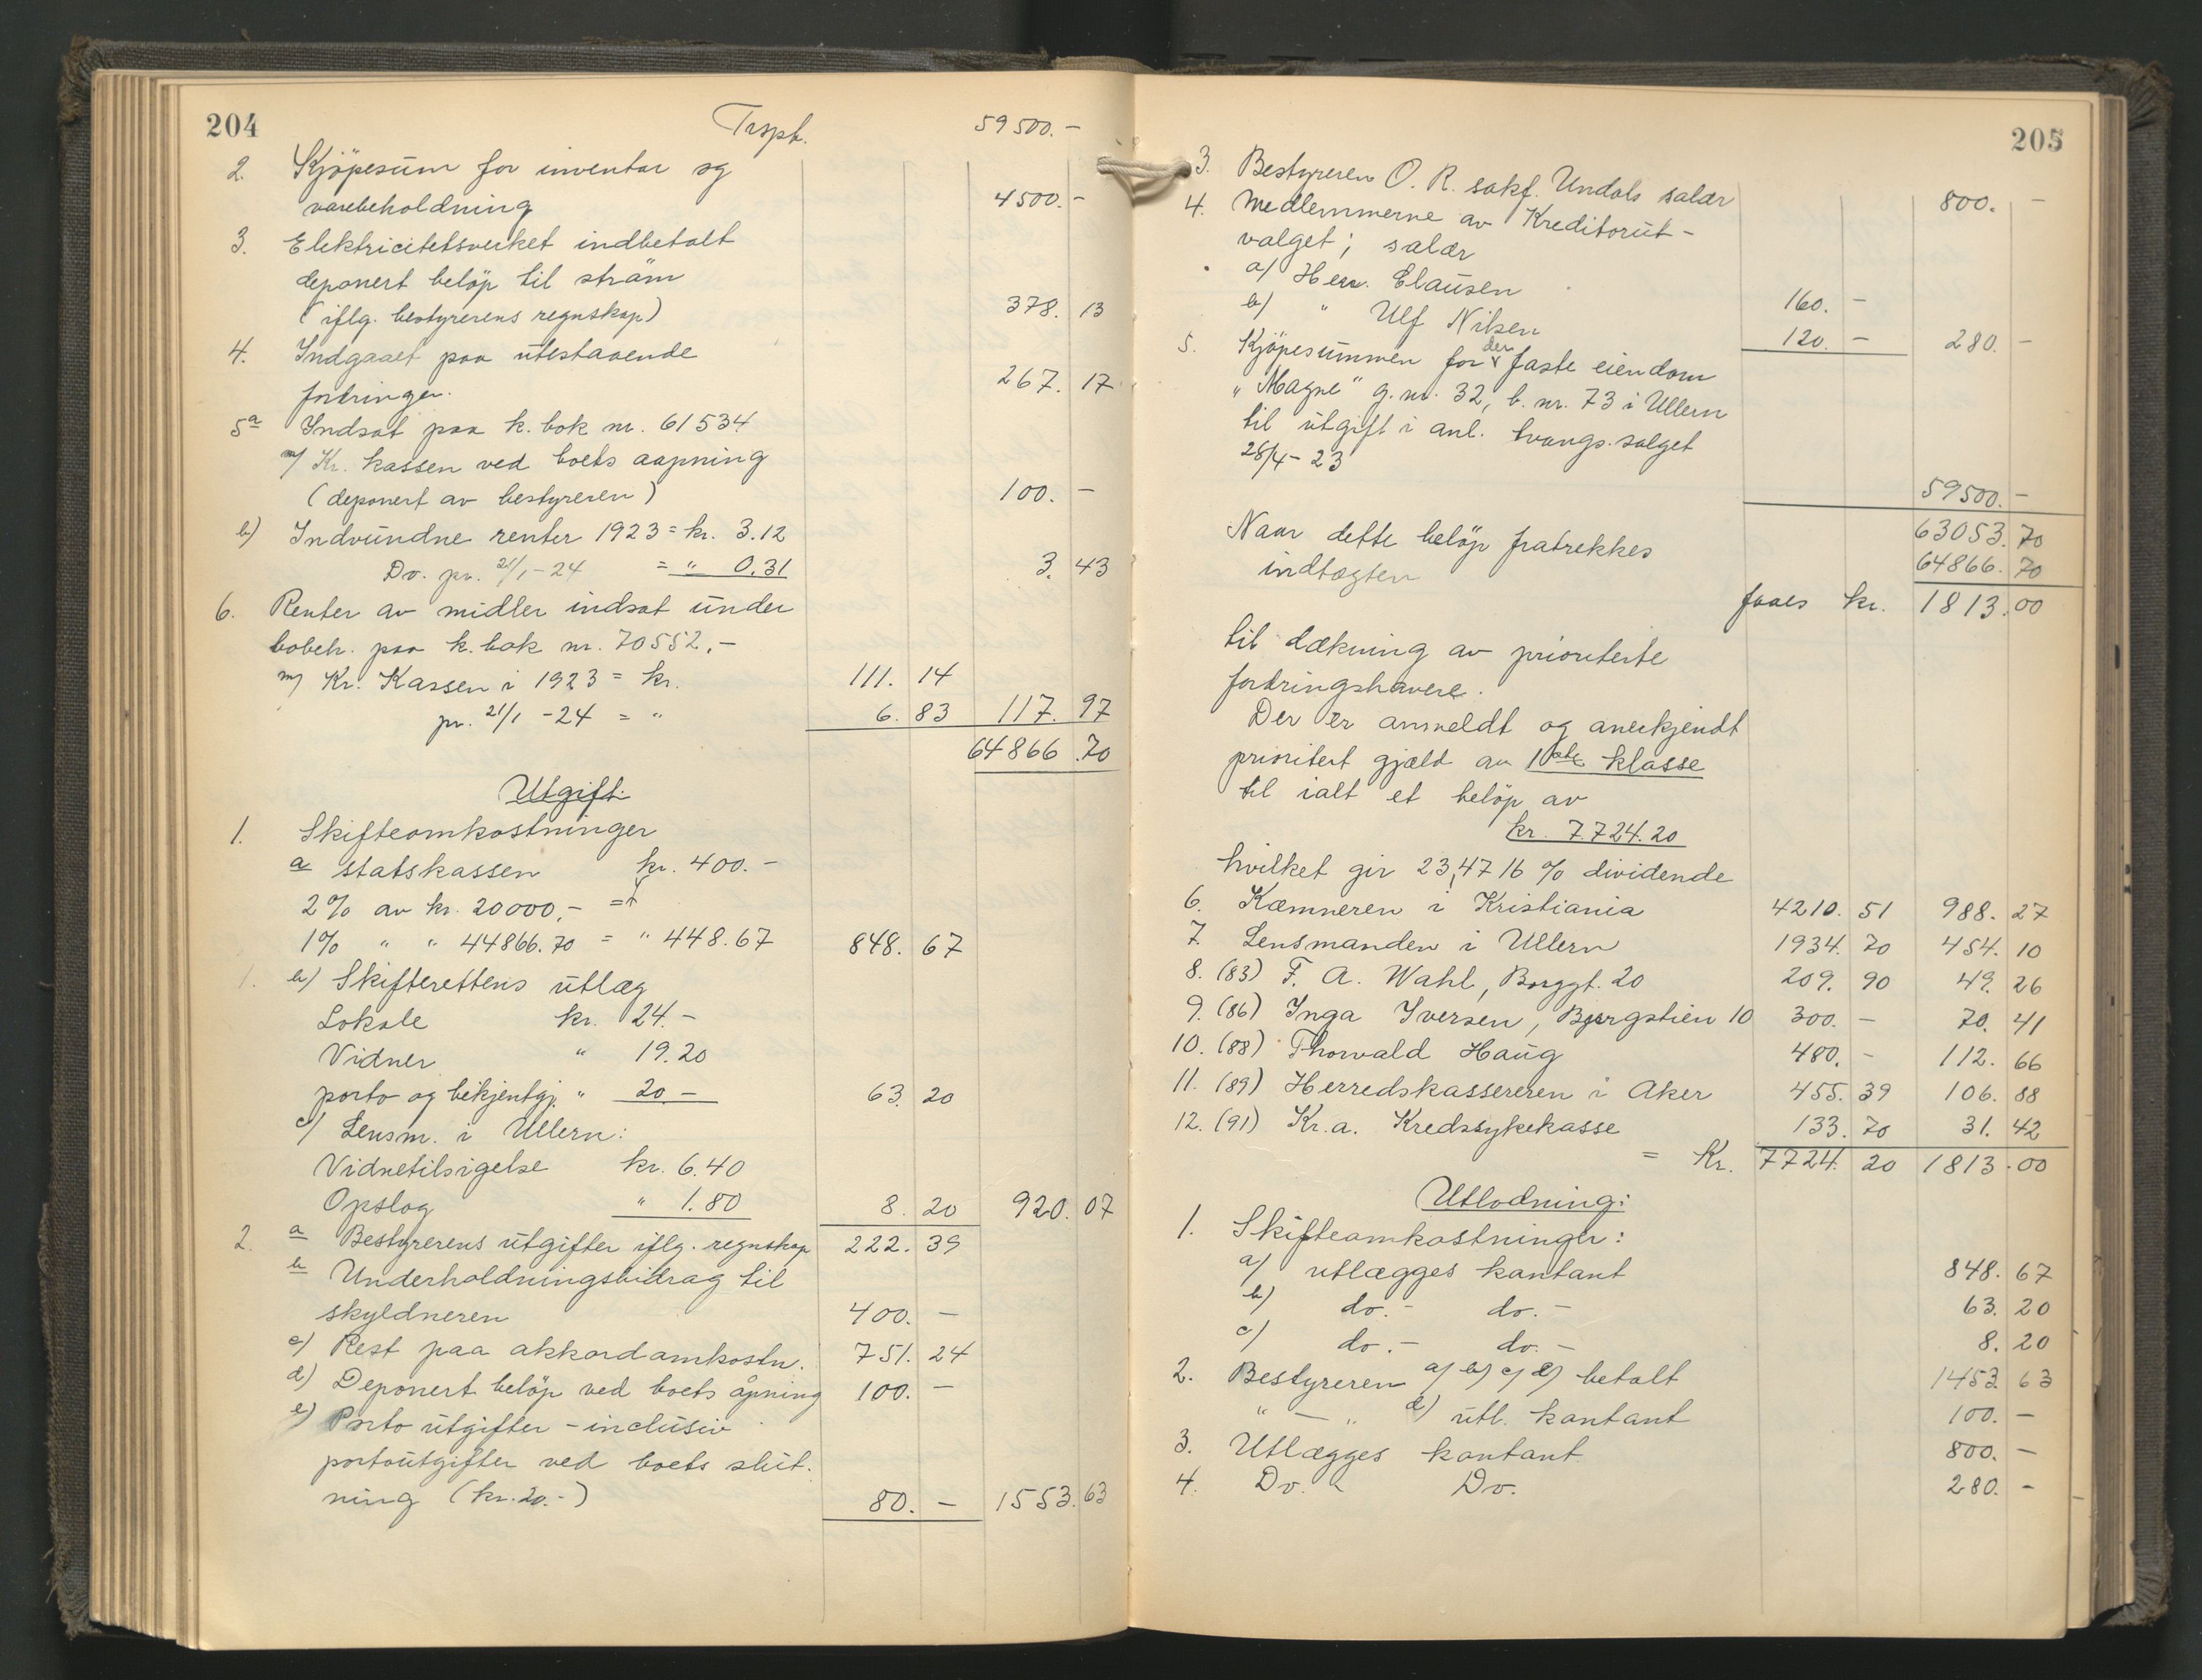 204
Trspt. 59500.-
2. Kjöpesum for inventar og
varebeholdning 4500.-
3. Elektricitetsverket indbetalt
deponert belöp til ström
(iflg. bestyrerens regnskap) 378. 13
4. Indgaaet paa utestaaende
fordringer. 267. 17
5a Indsat paa k. bok nr. 61534
m/ Kr. kassen ved boets aapning
(deponert av bestyreren) 100. -
b) Indvundne renter 1923 = kr. 3.12
Do. pr. 21/1-24 = " 0.31 3. 43
6. Renter av midler indsat under
bobeh. paa k. bok nr. 70552.-
m/ Kr. Kassen i 1923 = kr. 111. 14
pr. 21/1 -24 = " 6. 83 117. 97
64866.70
Utgift:
1. Skifteomkostninger
a statskassen kr. 400.-
2% av kr. 20000,- =
1% " " 44866.70 = " 448.67 848. 67
1. b) Skifterettens utlæg
Lokale kr. 24.-
Vidner " 19.20
porto og bekjentgj. " 20 - 63. 20
c) Lensm. i Ullern:
Vidnetilsigelse kr. 6.40
Opslag " 1.80 8. 20 920. 07
2. a Bestyrerens utgifter iflg. regnskap 222. 39
b Underholdningsbidrag til
skyldneren 400. -
c) Rest paa akkordomkostn. 751. 24
d) Deponert belöp ved boets åpning 100. -
e) Porto utgifter - inclusiv
portoutgifter ved boets slut-
ning (kr. 20.-) 80. - 1553.63
205
3. Bestyreren O. R. sakf. Undals salær 800. -
4. Medlemmerne av Kreditorut-
valget; salær
a) Herr. Clausen 160. -
b) " Ulf Nilsen 120. - 280. -
5. Kjöpesummen for den faste eiendom
"Magne" g. nr. 32, b. nr. 73 i Ullern
til utgift i anl. tvangs-salget
28/4-23 59500.-
63053.70
Naar dette belöp fratrekkes
indtægten 64866.70
faaes kr. 1813.00
til dækning av prioriterte
fordringshavere.
Der er anmeldt og anerkjendt
prioritert gjæld av 1ste klasse
til ialt et belöp av
kr. 7724.20
hvilket gir 23,4716 % dividende
6. Kæmneren i Kristiania 4210. 51 988. 27
7. Lensmanden i Ullern 1934. 70 454. 10
8. (83) F. A. Wahl, Borggt. 20 209. 90 49. 26
9. (86) Inga Iversen, Bjergstien 10 300. - 70. 41
10. (88) Thorvald Haug 480. - 112. 66
11. (89) Herredskassereren i Aker 455. 39 106. 88
12. (91) Kr.a. Kredssykekasse 133. 70 31. 42
= Kr. 7724. 20 1813.00
Utlodning:
1. Skifteomkostninger:
a) utlægges kontant 848. 67
b) do. - do. - 63. 20
c) do. - do. - 8. 20
2. Bestyreren a) b) c) e) betalt 1453. 63
" - " d) utl. kontant 100. -
3. Utlægges kontant 800. -
4. Do. Do. 280. -